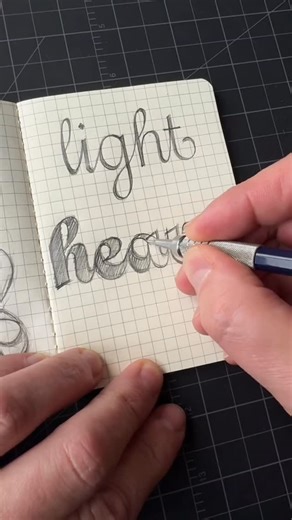 light
heav